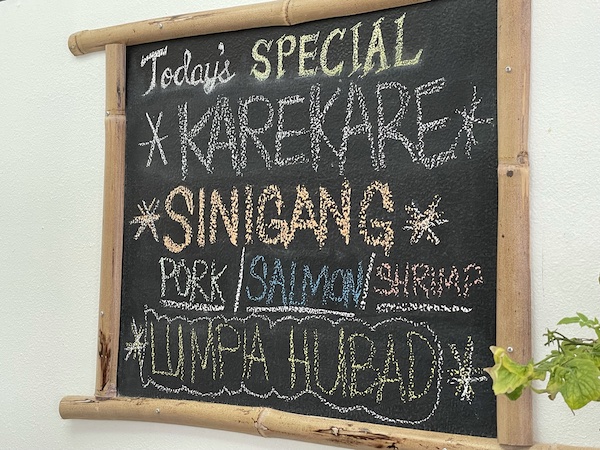 Today's SPECIAL
KAREKARE
SINIGANG
PORK/SALMON/SHRIMP
LUMPIA HUBAD